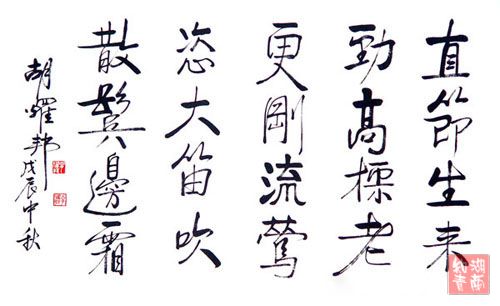 直節生来
勁高標老
更剛流鶯
恣大笛吹
散鬢邊霜
胡耀邦戊辰中秋
湖南